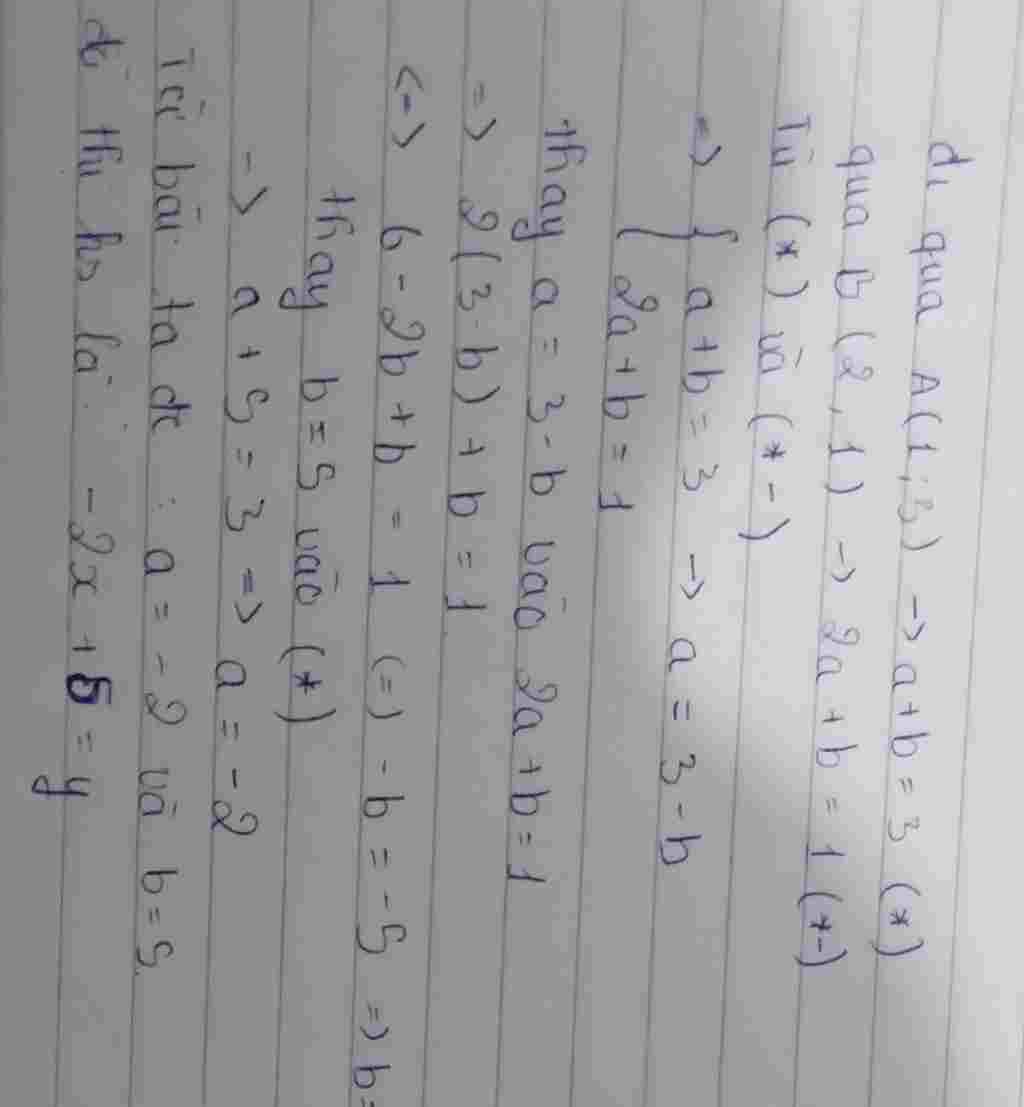 đi qua A(1;3) -> a+b=3 (*)
qua B (2,1) -> 2a+b=1 (*-)
Từ (*) và (*-)
=> { a+b=3 -> a=3-b
{ 2a+b=1
thay a=3-b vào 2a+b=1
=> 2(3-b)+b=1
<-> 6-2b+b=1 (=) -b=-5 => b=
thay b=5 vào (*)
-> a+5=3 => a=-2
Từ bài ta đc : a=-2 và b=5
đt hs là: -2x+5=y